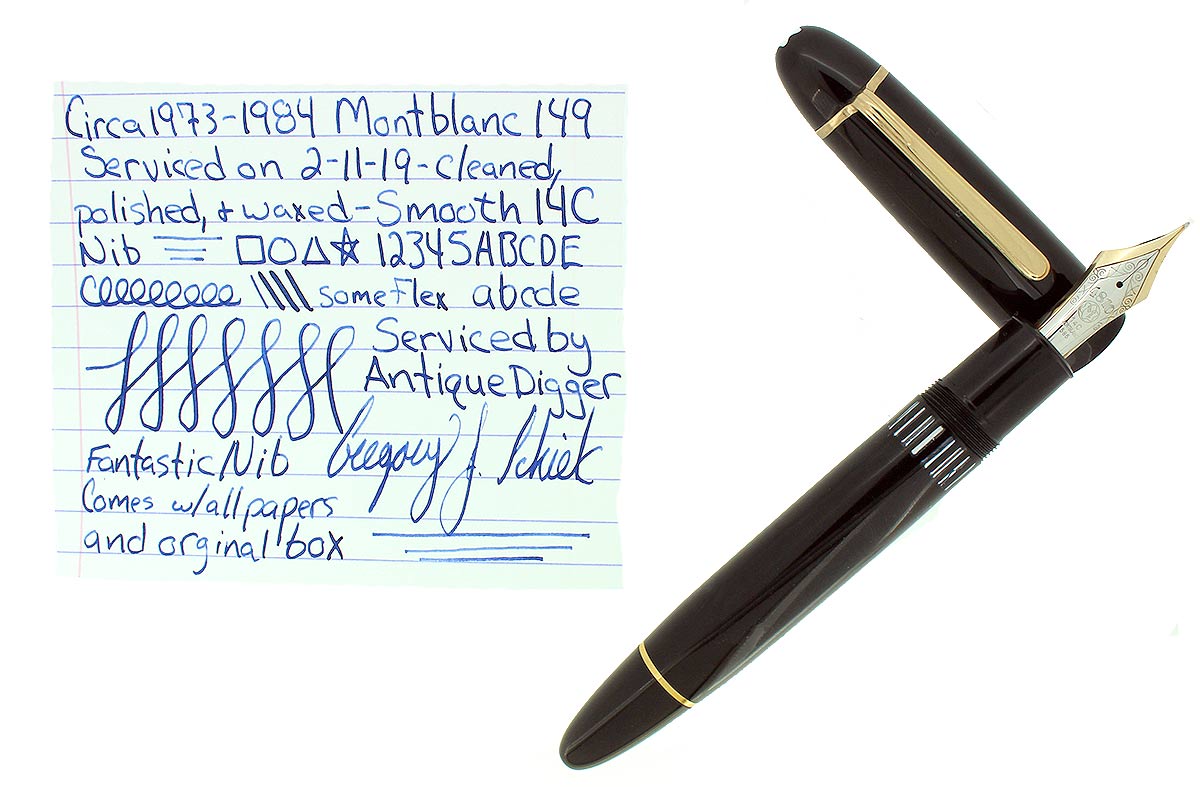 Circa 1973-1984 Montblanc 149
Serviced on 2-11-19-cleaned,
polished, & waxed-Smooth 14C
Nib 12345ABCDE
some Flex abcde
Serviced by
AntiqueDigger
Fantastic Nib Gregory J.
Comes w/all papers
and orginal box